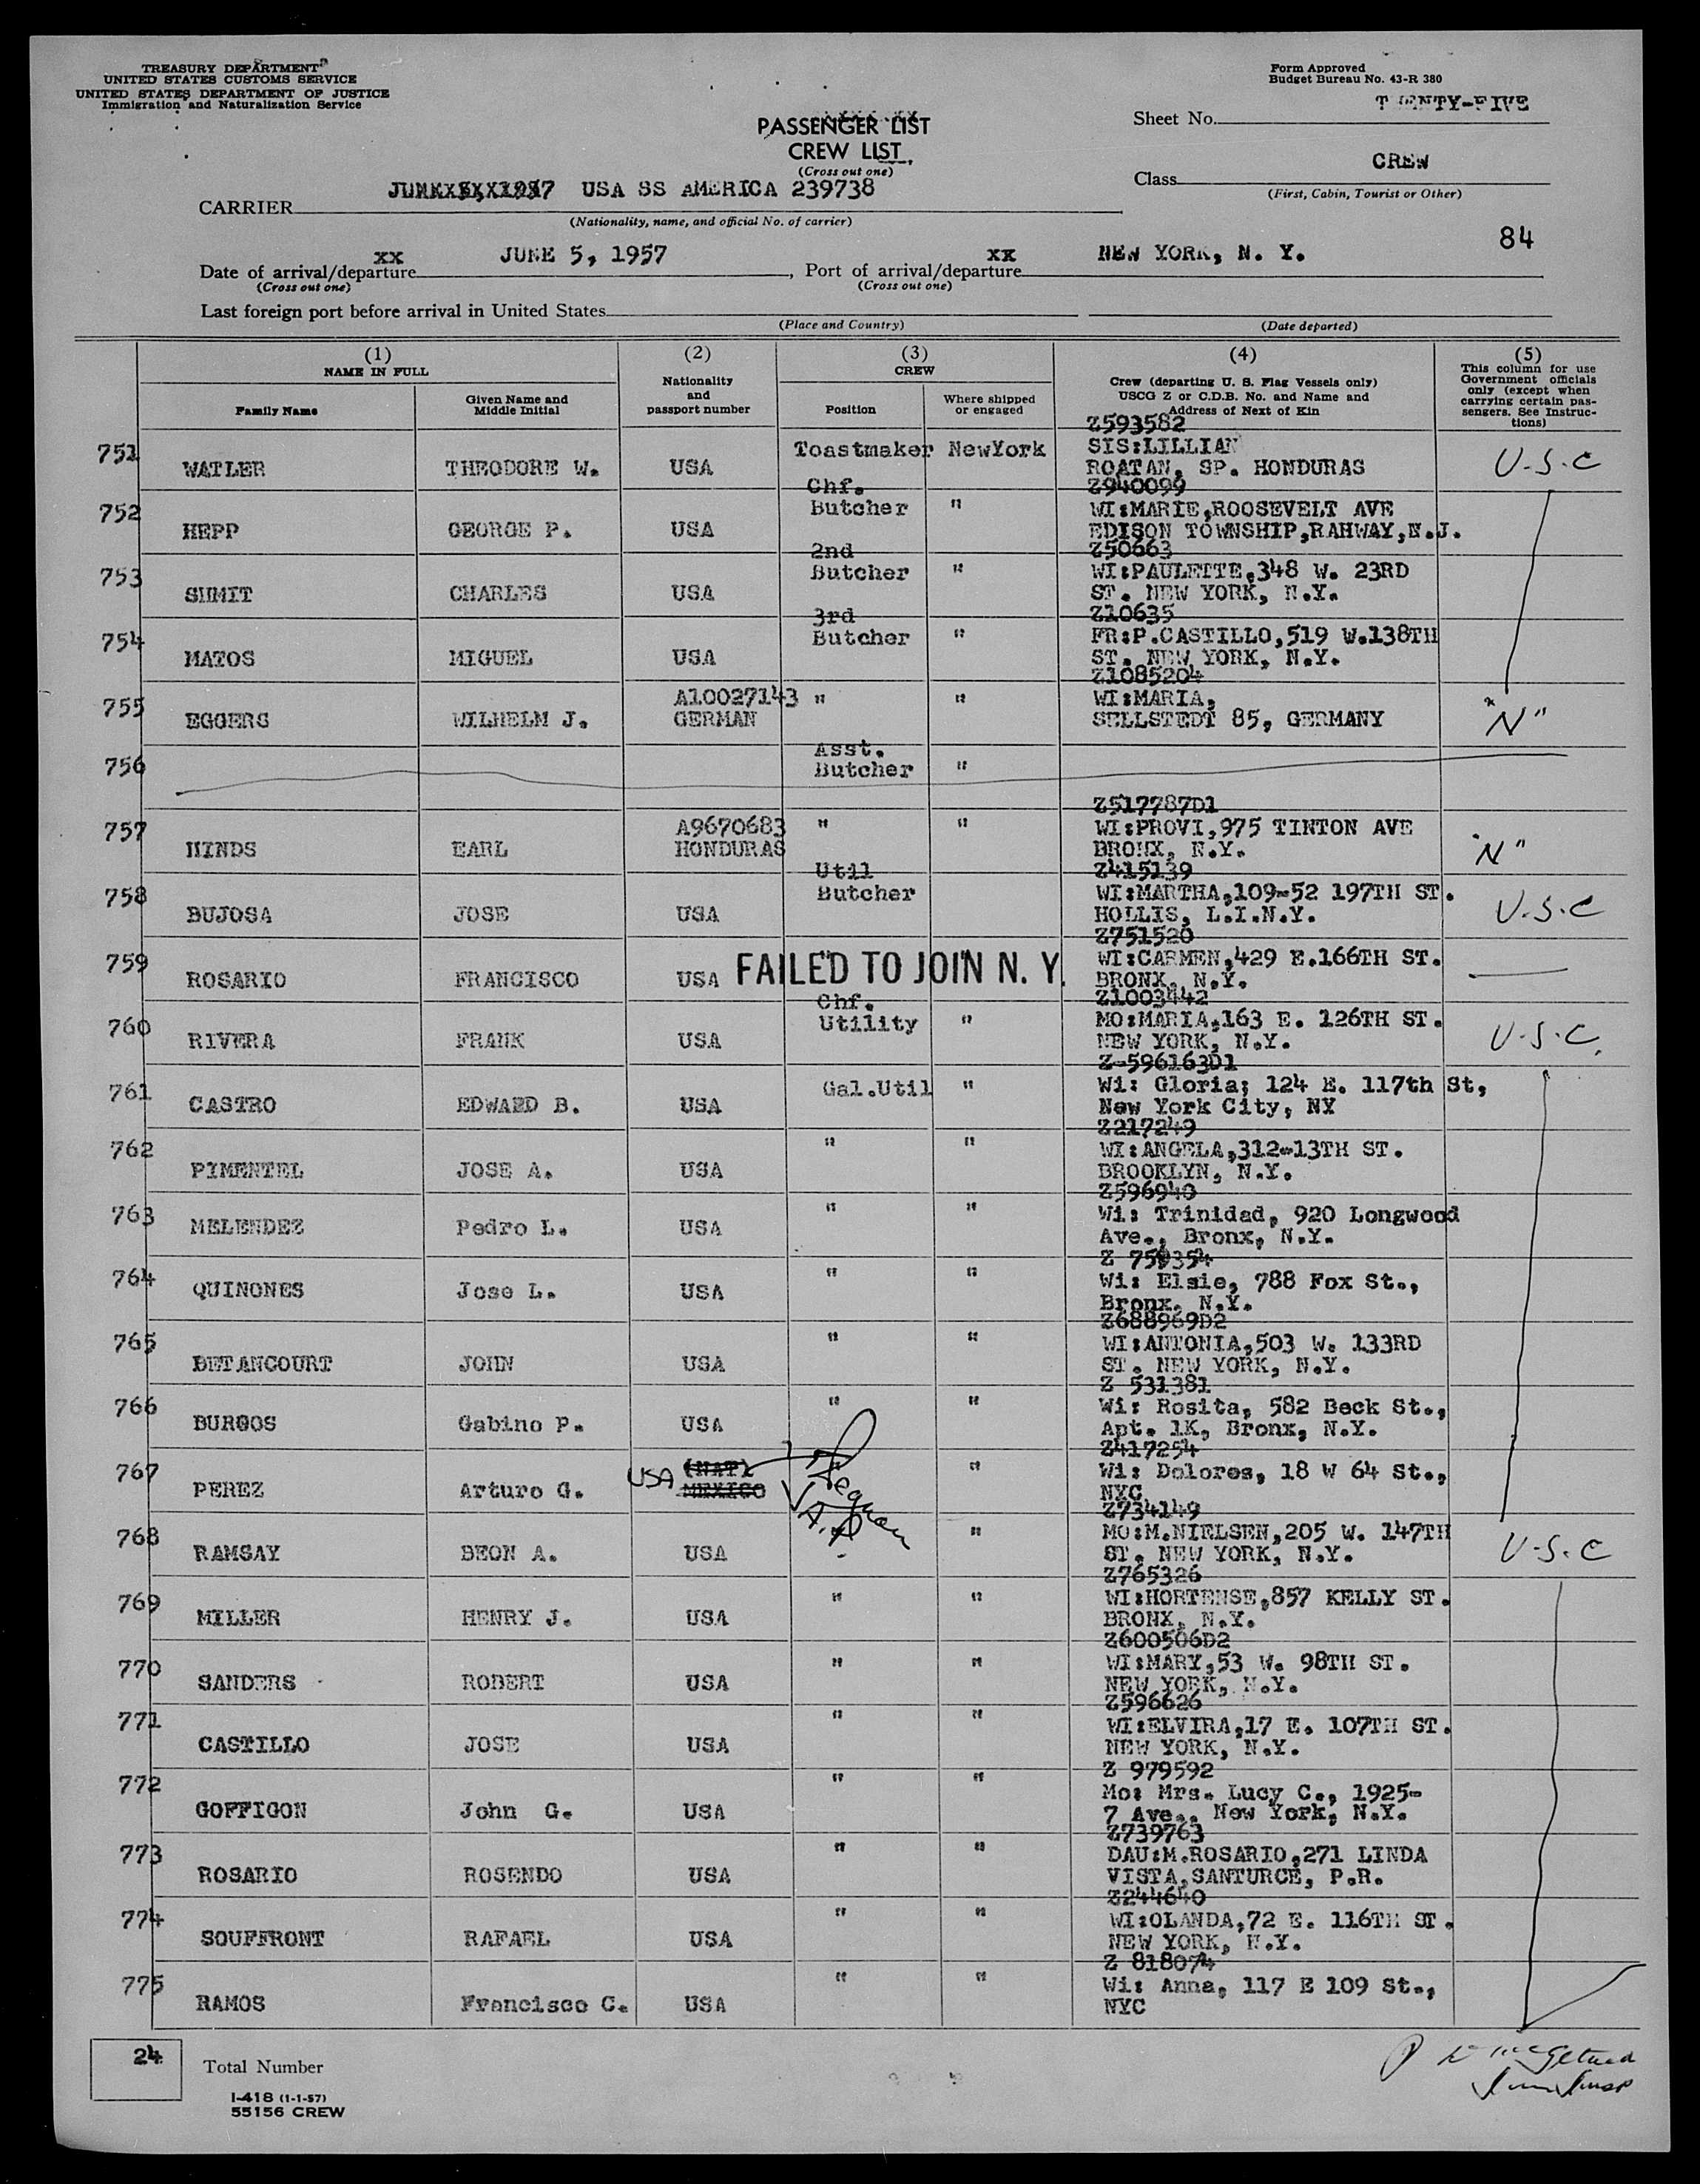 TREASURY DEPARTMENT
UNITED STATES CUSTOMS SERVICE
UNITED STATES DEPARTMENT OF JUSTICE
Immigration and Naturalization Service
Form Approved
Budget Bureau No. 43-R 380
PASSENGER LIST
CREW LIST
(Cross out one)
Sheet No. TWENTY-FIVE
Class CREW
(First, Cabin, Tourist or Other)
CARRIER USA SS AMERICA 239738
(Nationality, name, and official No. of carrier)
84
Date of arrival/departure xx JUNE 5, 1957, Port of arrival/departure xx NEW YORK, N. Y.
(Cross out one) (Cross out one)
Last foreign port before arrival in United States
(Place and Country) (Date departed)
(1) (2) (3) (4) (5)
NAME IN FULL
Family Name
Given Name and Middle Initial
Nationality and passport number
CREW
Position
Where shipped or engaged
Crew (departing U. S. Flag Vessels only)
USCG Z or C.D.B. No. and Name and
Address of Next of Kin
This column for use
Government officials
only (except when
carrying certain pas-
sengers. See Instruc-
tions)
Z593582
751 WATLER THEODORE W. USA Toastmaker NewYork SIS:LILLIAN
ROATAN, SP. HONDURAS U.S.C
Z940099
752 HEPP GEORGE P. USA Chf. Butcher " WI:MARIE,ROOSEVELT AVE
EDISON TOWNSHIP,RAHWAY,N.J.
Z50663
753 SUMIT CHARLES USA 2nd Butcher " WI:PAULETTE,348 W. 23RD
ST. NEW YORK, N.Y.
Z10635
754 MATOS MIGUEL USA 3rd Butcher " FR:P.CASTILLO,519 W.138TH
ST. NEW YORK, N.Y.
Z1085204
755 EGGERS WILHELM J. A10027143 GERMAN " " WI:MARIA,
SELLSTEDT 85, GERMANY "N"
756 Asst. Butcher "
Z517787D1
757 HINDS EARL A9670683 HONDURAS " " WI:PROVI,975 TINTON AVE
BRONX, N.Y. "N"
Z415139
758 BUJOSA JOSE USA Util Butcher WI:MARTHA,109-52 197TH ST.
HOLLIS, L.I.N.Y. U.S.C
Z751520
759 ROSARIO FRANCISCO USA FAILED TO JOIN N. Y. WI:CARMEN,429 E.166TH ST.
BRONX, N.Y.
Z1003442
760 RIVERA FRANK USA Chf. Utility " MO:MARIA,163 E. 126TH ST.
NEW YORK, N.Y. U.S.C.
Z-596163D1
761 CASTRO EDWARD B. USA Gal.Util " Wi: Gloria; 124 E. 117th St,
New York City, NY
Z217249
762 PIMENTEL JOSE A. USA " " WI:ANGELA,312-13TH ST.
BROOKLYN, N.Y.
Z596940
763 MELENDEZ Pedro L. USA " " Wi: Trinidad, 920 Longwood
Ave., Bronx, N.Y.
764 QUINONES Jose L. USA " " Wi: Elsie, 788 Fox St.,
Bronx, N.Y.
Z688969D2
765 BETANCOURT JOHN USA " " WI:ANTONIA,503 W. 133RD
ST. NEW YORK, N.Y.
Z 531381
766 BURGOS Gabino P. USA " " Wi: Rosita, 582 Beck St.,
Apt. 1K, Bronx, N.Y.
Z417254
767 PEREZ Arturo G. USA (NAT) MEXICO " Wi: Dolores, 18 W 64 St.,
NYC
Z734149
768 RAMSAY BEON A. USA " MO:M.NIELSEN,205 W. 147TH
ST. NEW YORK, N.Y. U.S.C
Z765326
769 MILLER HENRY J. USA " " WI:HORTENSE,857 KELLY ST.
BRONX, N.Y.
Z600506D2
770 SANDERS ROBERT USA " " WI:MARY,53 W. 98TH ST.
NEW YORK, N.Y.
Z596626
771 CASTILLO JOSE USA " " WI:ELVIRA,17 E. 107TH ST.
NEW YORK, N.Y.
Z 979592
772 GOFFIGON John G. USA " " Mo: Mrs. Lucy C., 1925-
7 Ave., New York, N.Y.
Z739763
773 ROSARIO ROSENDO USA " " DAU:M.ROSARIO,271 LINDA
VISTA,SANTURCE, P.R.
Z244640
774 SOUFFRONT RAFAEL USA " " WI:OLANDA,72 E. 116TH ST.
NEW YORK, N.Y.
Z 818074
775 RAMOS Francisco C. USA " " Wi: Anna, 117 E 109 St.,
NYC
24 Total Number
I-418 (1-1-57)
55156 CREW